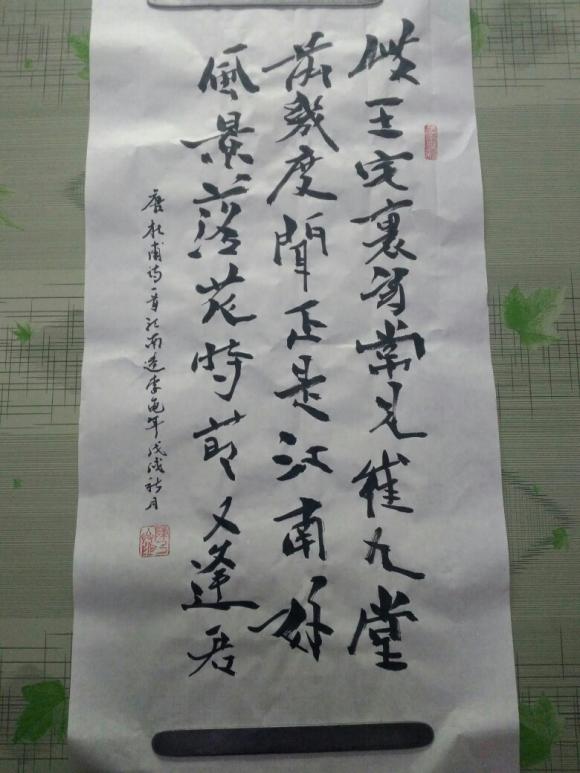 岐王宅裏尋常見崔九堂
前幾度聞正是江南好
風景落花時節又逢君
唐杜甫诗一首江南逢李龟年戊戌秋月